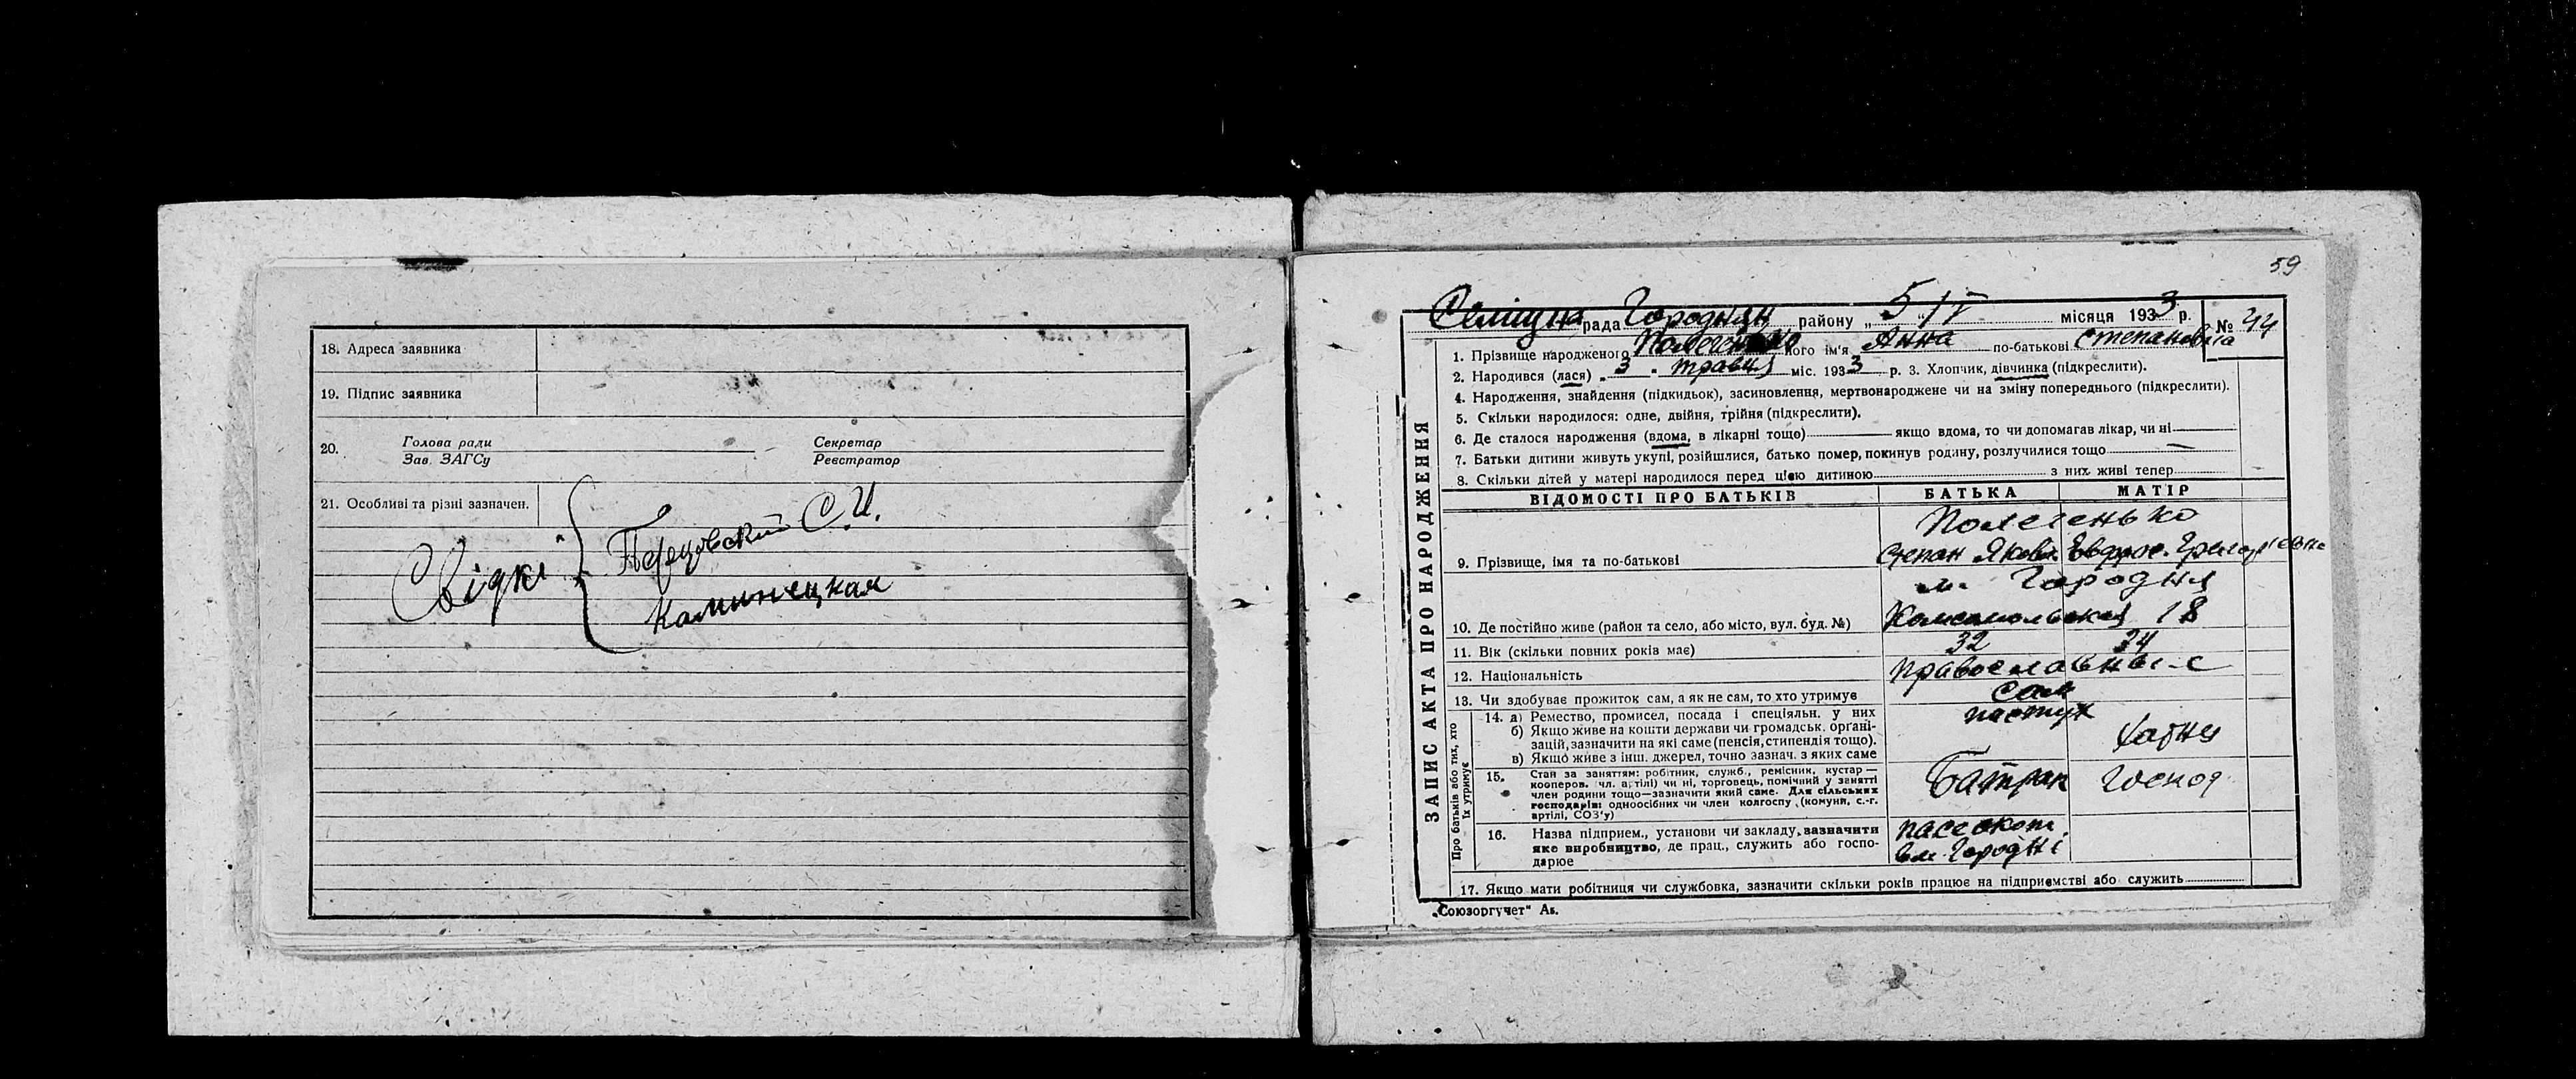 18. Адреса заявника
19. Підпис заявника
20. Голова ради Секретар
Зав. ЗАГСу Реєстратор
21. Особливі та різні зазначен.
Свідкі
С.И.
Каминецкая
59
ЗАПИС АКТА ПРО НАРОДЖЕННЯ
Селищна рада Городнян району „ 5/V місяця 1933 р. № 44
1. Прізвище народженого його ім'я Анна по-батькові Степановна
2. Народився (лася) „ 3 " травня міс. 1933 р. 3. Хлопчик, дівчинка (підкреслити).
4. Народження, знайдення (підкидьок), засиновлення, мертвонароджене чи на зміну попереднього (підкреслити).
5. Скільки народилося: одне, двійня, трійня (підкреслити).
6. Де сталося народження (вдома, в лікарні тощо) якщо вдома, то чи допомагав лікар, чи ні
7. Батьки дитини живуть укупі, розійшлися, батько помер, покинув родину, розлучилися тощо
8. Скільки дітей у матері народилося перед цією дитиною з них живі тепер
ВІДОМОСТІ ПРО БАТЬКІВ БАТЬКА МАТІР
Полегенько
9. Прізвище, імя та по-батькові Степан Яковл. Евфрос. Григорьевна
м. Городня
10. Де постійно живе (район та село, або місто, вул. буд. №) Комсомольская 18
11. Вік (скільки повних років має) 32 34
12. Національність православны-е
13. Чи здобуває прожиток сам, а як не сам, то хто утримує сам
Про батьків або тих, хто їх утримує
14. а) Ремество, промисел, посада і спеціяльн. у них пастух
б) Якщо живе на кошти держави чи громадськ. органі-
зацій, зазначити на які саме (пенсія, стипендія тощо). хатня
в) Якщо живе з інш. джерел, точно зазнач. з яких саме
15. Стан за заняттям: робітник, служб., ремісник, кустар—
кооперов. (чл. артілі) чи ні, торговець, помічний у занятті
член родини тощо—зазначити який саме. Для сільських
господарів: одноосібних чи член колгоспу (комуни, с.-г.
артілі, СОЗ'у)
Батрак Господ
16. Назва підприєм., установи чи закладу, зазначити
яке виробництво, де прац., служить або госпо-
дарює
пасе скот
в м. Городні
17. Якщо мати робітниця чи службовка, зазначити скільки років працює на підприємстві або служить
„Союзоргучет" Ав.